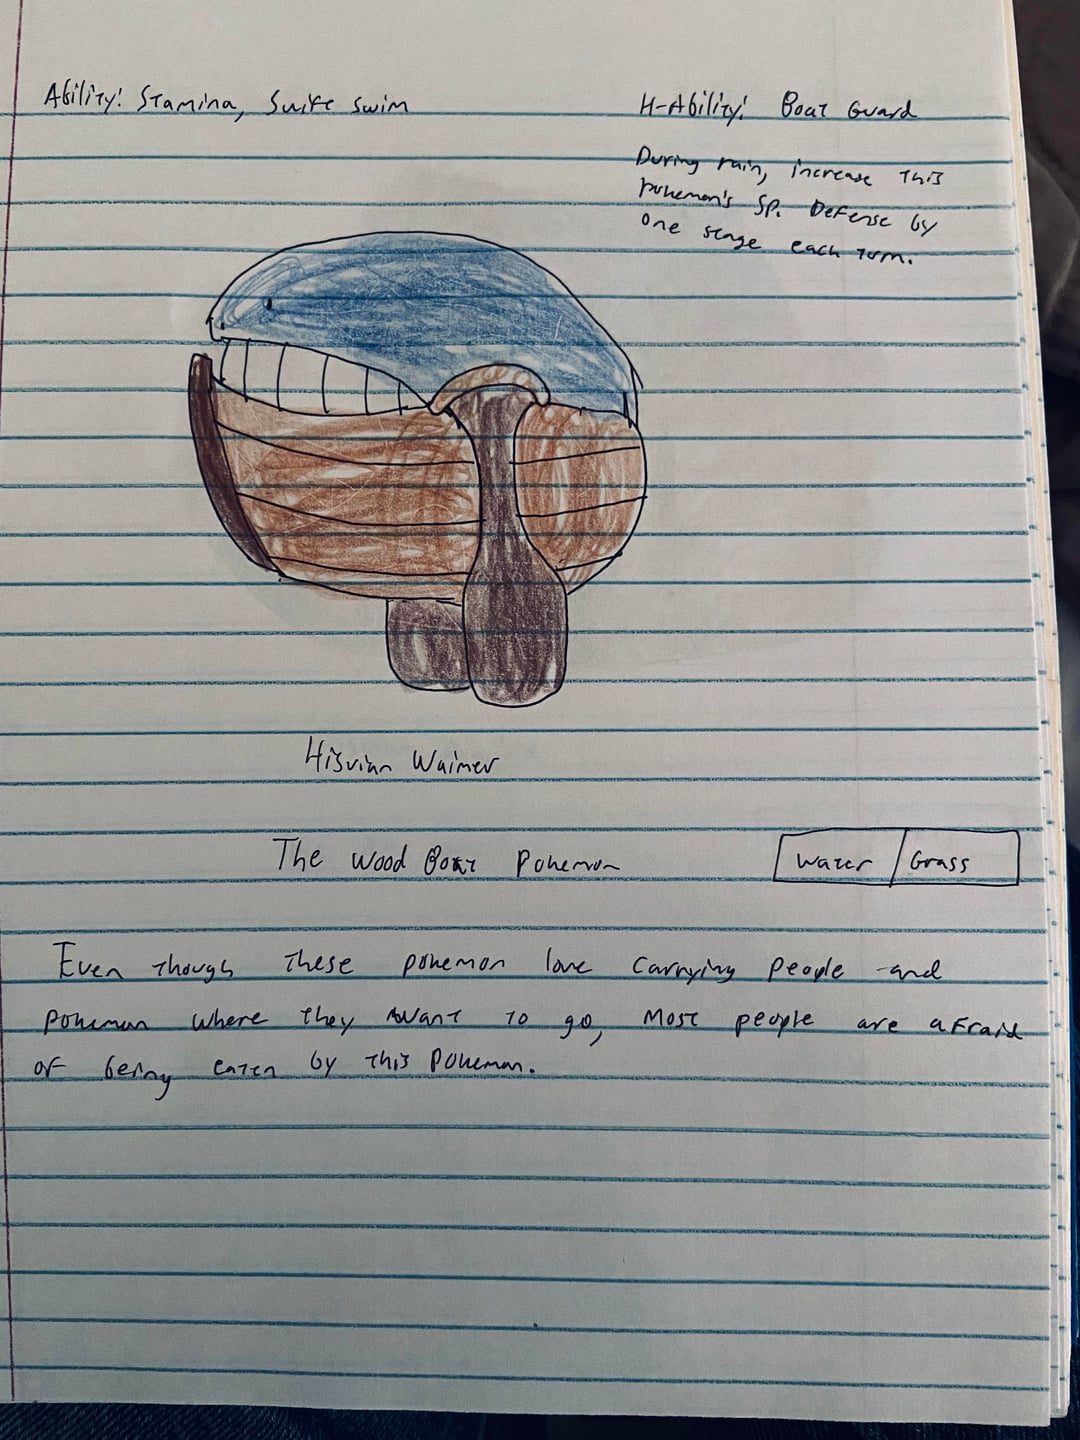 Ability: Stamina, Swift swim
H-Ability: Boat Guard
During rain, increase this
pokemon's Sp. Defense by
one stage each turn.
Hisuian Wailmer
The Wood Boat Pokemon
Water / Grass
Even though these pokemon love carrying people and
pokemon where they want to go, most people are afraid
of being eaten by this Pokemon.